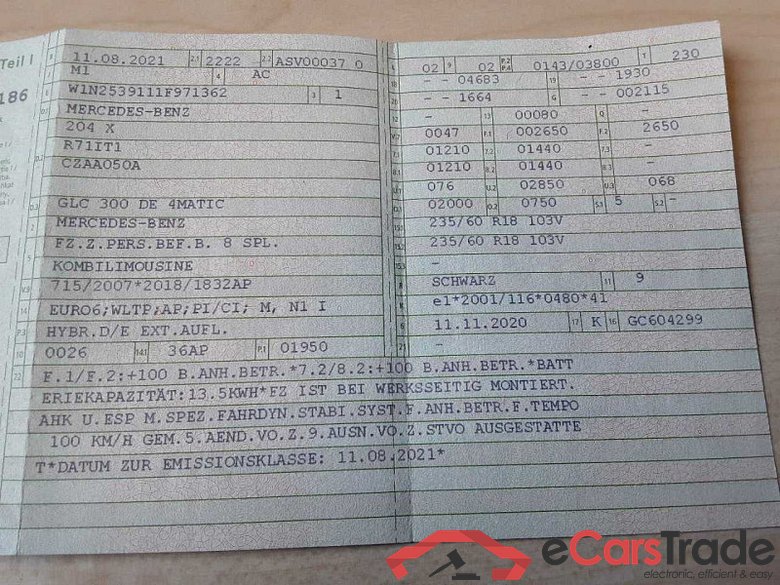 Teil I
186
B 11.08.2021 2.1 2222 2.2 ASV00037 0
J M1 4 AC
E W1N2539111F971362 3 1
D.1 MERCEDES-BENZ
D.2 204 X
R71IT1
CZAA050A
D.3 GLC 300 DE 4MATIC
2 MERCEDES-BENZ
5 FZ.Z.PERS.BEF.B. 8 SPL.
KOMBILIMOUSINE
V.9 715/2007*2018/1832AP
14 EURO6;WLTP;AP;PI/CI; M, N1 I
P.3 HYBR.D/E EXT.AUFL.
10 0026 14.1 36AP P.1 01950
22 F.1/F.2:+100 B.ANH.BETR.*7.2/8.2:+100 B.ANH.BETR.*BATT
ERIEKAPAZITÄT:13.5KWH*FZ IST BEI WERKSSEITIG MONTIERT.
AHK U.ESP M.SPEZ.FAHRDYN.STABI.SYST.F.ANH.BETR.F.TEMPO
100 KM/H GEM.5.AEND.VO.Z.9.AUSN.VO.Z.STVO AUSGESTATTE
T*DATUM ZUR EMISSIONSKLASSE: 11.08.2021*
L 02 9 02 P.2 P.4 0143/03800 T 230
18 - - 04683 19 - - 1930
20 - - 1664 G - - 002115
- 13 00080 Q -
V.7 0047 F.1 002650 F.2 2650
7.1 01210 7.2 01440 7.3 -
8.1 01210 8.2 01440 8.3 -
U.1 076 U.2 02850 U.3 068
O.1 02000 O.2 0750 S.1 5 S.2 -
15.1 235/60 R18 103V
15.2 235/60 R18 103V
15.3 -
R SCHWARZ 11 9
K e1*2001/116*0480*41
6 11.11.2020 17 K 16 GC604299
21 -
eCarsTrade
electronic, efficient & easy